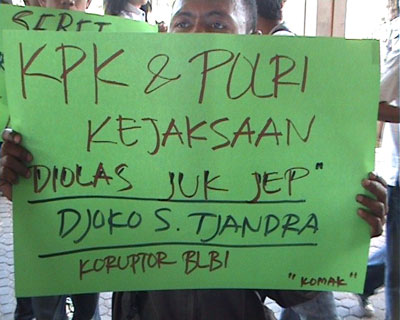 SERET
KPK & POLRI
KEJAKSAAN
DIOLAS JUK JEP"
DJOKO S. TJANDRA
KORUPTOR BLBI
"KOMAK"